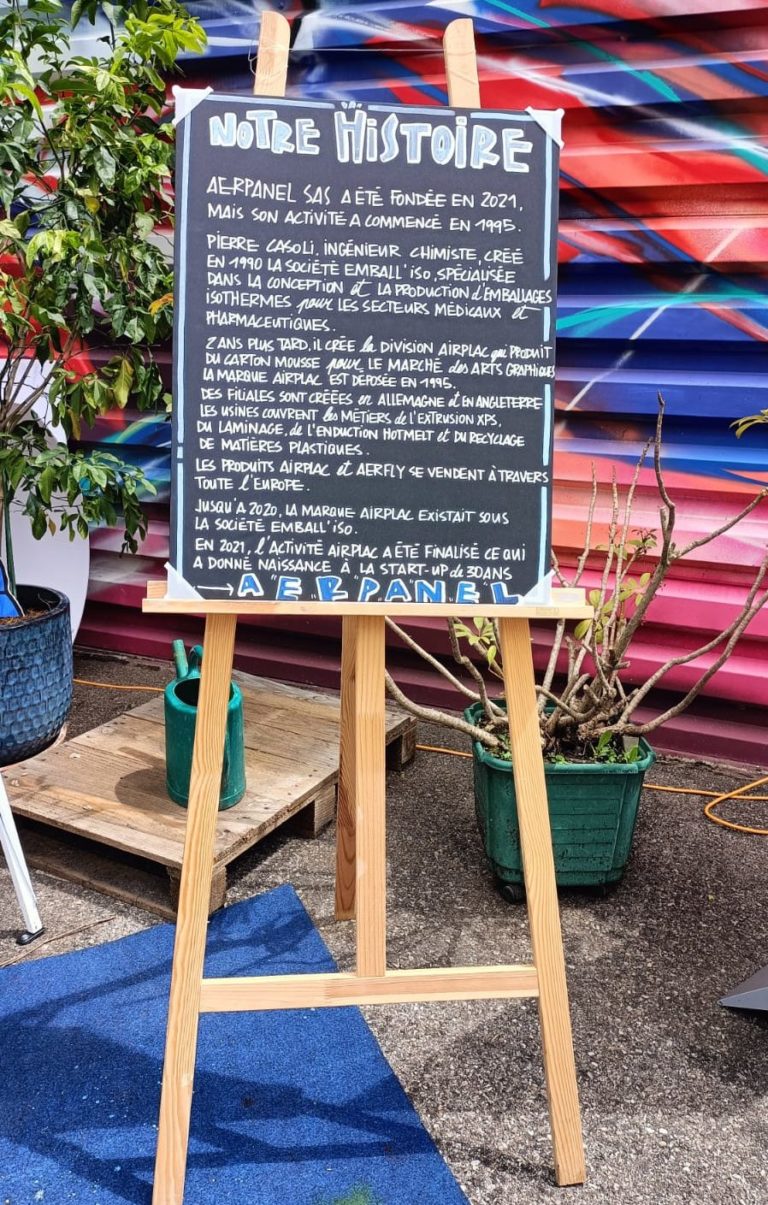 NOTRE HISTOIRE
AERPANEL SAS A ÉTÉ FONDÉE EN 2021,
MAIS SON ACTIVITÉ A COMMENCÉ EN 1995.
PIERRE CASOLI, INGÉNIEUR CHIMISTE, CRÉÉ
EN 1990 LA SOCIÉTÉ EMBALL'ISO, SPÉCIALISÉE
DANS LA CONCEPTION et LA PRODUCTION d'EMBALLAGES
ISOTHERMES pour LES SECTEURS MÉDICAUX et
PHARMACEUTIQUES.
2 ANS PLUS TARD, IL CRÉE la DIVISION AIRPLAC qui PRODUIT
DU CARTON MOUSSE pour LE MARCHÉ des ARTS GRAPHIQUES
LA MARQUE AIRPLAC EST DÉPOSÉE EN 1995.
DES FILIALES SONT CRÉÉES en ALLEMAGNE et EN ANGLETERRE
LES USINES COUVRENT les MÉTIERS de l'EXTRUSION XPS,
DU LAMINAGE, de L'ENDUCTION HOTMELT et DU RECYCLAGE
DE MATIÈRES PLASTIQUES.
LES PRODUITS AIRPLAC et AERFLY SE VENDENT À TRAVERS
TOUTE l'EUROPE.
JUSQU'A 2020, LA MARQUE AIRPLAC EXISTAIT SOUS
LA SOCIÉTÉ EMBALL'ISO.
EN 2021, l'ACTIVITÉ AIRPLAC A ÉTÉ FINALISÉ CE QUI
A DONNÉ NAISSANCE À LA START-UP de 30 ANS
→ AERPANEL